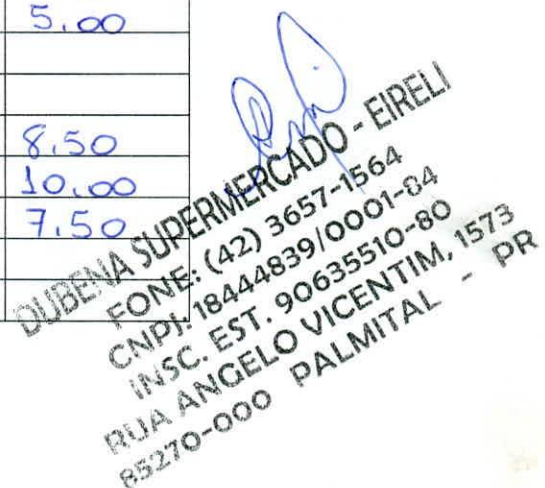 5.00
8.50
10.00
7.50
DUBENA SUPERMERCADO - EIRELI
FONE: (42) 3657-1564
CNPJ: 18444839/0001-84
INSC. EST. 90635510-80
RUA ANGELO VICENTIM, 1573
85270-000 PALMITAL - PR